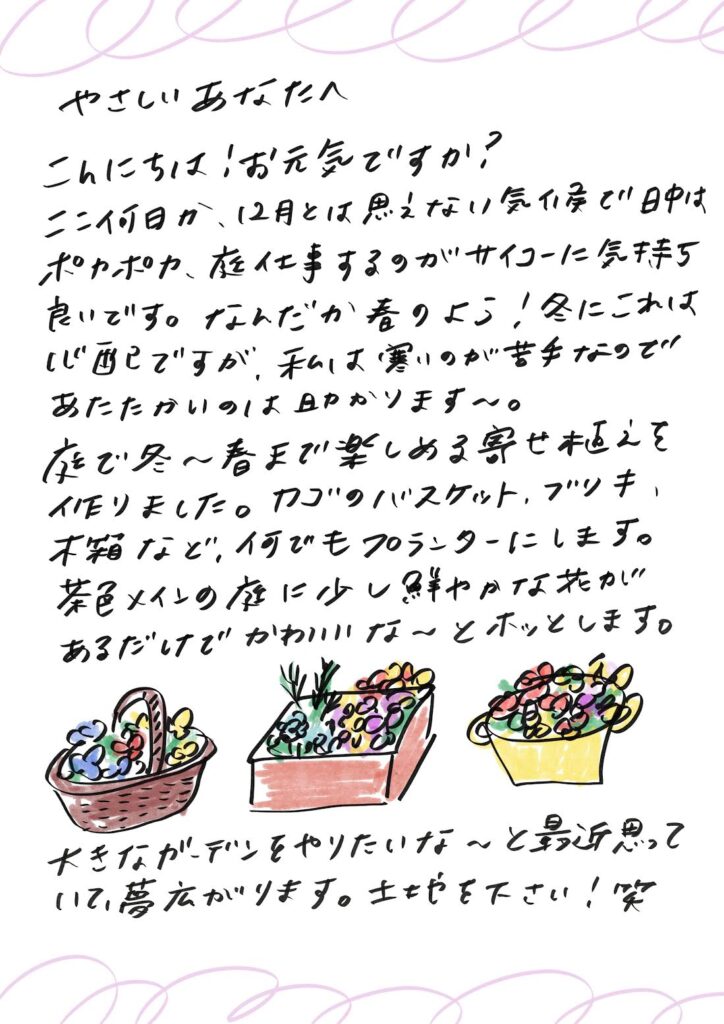 やさしいあなたへ
こんにちは！お元気ですか？
ここ何日か、12月とは思えない気候で日中は
ポカポカ、庭仕事するのがサイコーに気持ち
良いです。なんだか春のよう！冬にこれは
心配ですが、私は寒いのが苦手なので
あたたかいのは助かります〜。
庭で冬〜春まで楽しめる寄せ植えを
作りました。カゴのバスケット、ブリキ、
木箱など、何でもプランターにします。
茶色メインの庭に少し鮮やかな花が
あるだけでかわいいな〜とホッとします。
大きなガーデンをやりたいな〜と最近思って
いて、夢広がります。土地を下さい！笑